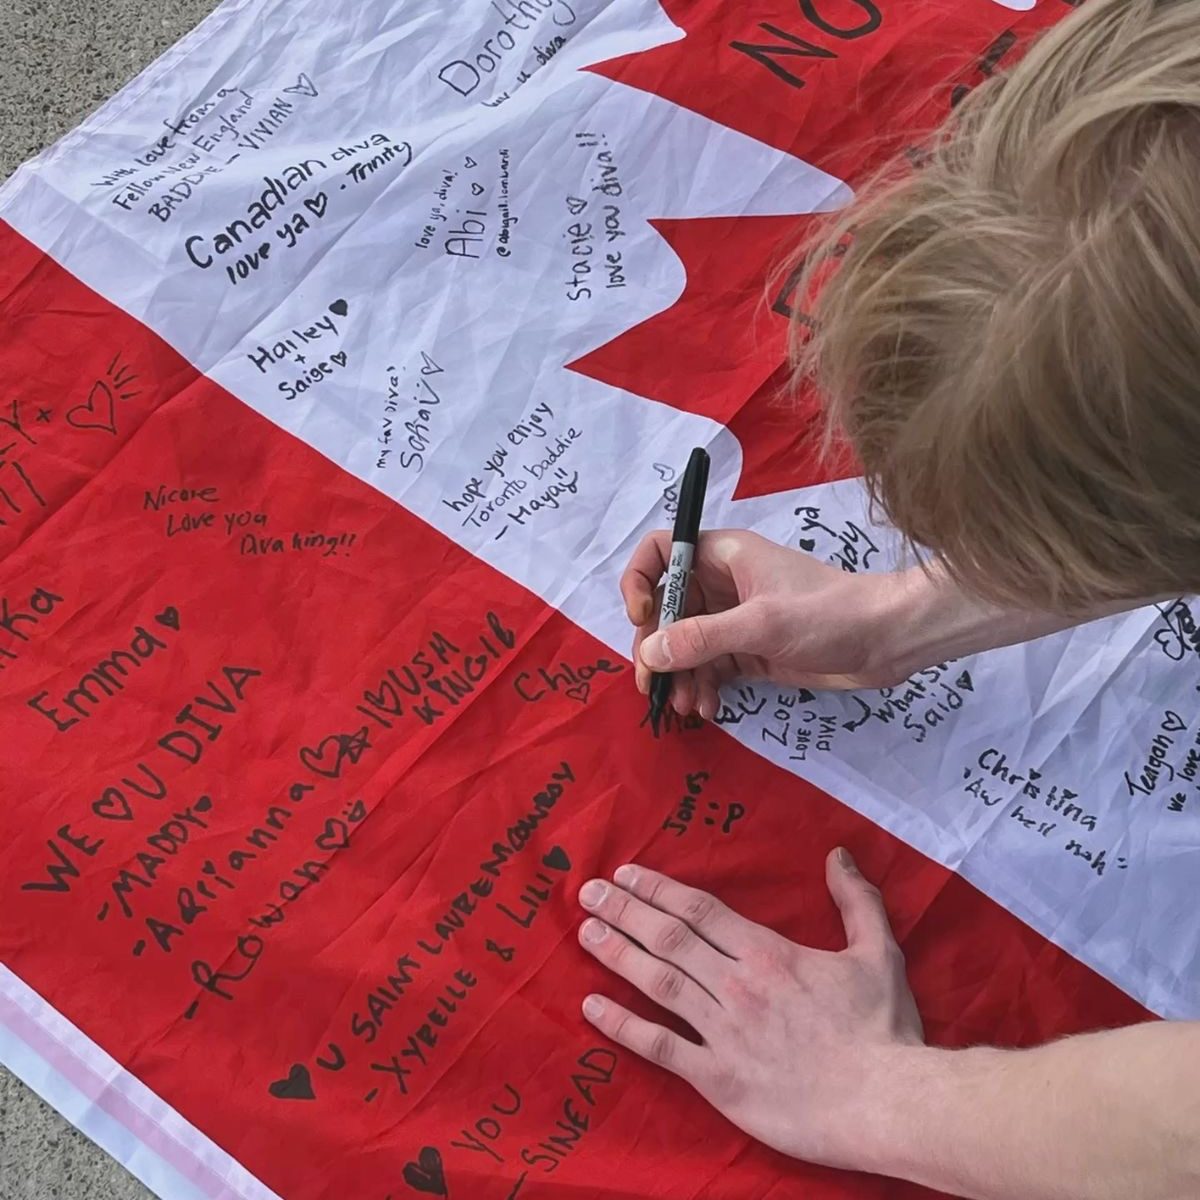 Dorothy
luv u diva
NO
With love from a
Fellow New England
BADDIE - VIVIAN ♡
Canadian diva
love ya ♡ - Trinity
love ya, diva! ♡
Abi ♡
@abugail.lombardi
Stacie ♡
love you diva!!
Hailey ♥
+
Saige ♡
my fav diva!
Sahai ♡
hope you enjoy
Toronto baddie
- Maya!!
Nicole
Love you
Diva king!!
ka
Emma ♥
WE ♡ U DIVA
- MADDY ♥
- Arrianna ♡
- Rowan ♡
I ♡ USM
Chloe
Sharpie
ZOE ♥
LOVE U
DIVA
What she
Said ♥
Christina
"Aw hell nah"
Teagan ♡
we love
Jones
:P
♥ U SAINT LAUREN COWBOY
- XYRELLE & LILI ♥
♥ YOU
- SINEAD